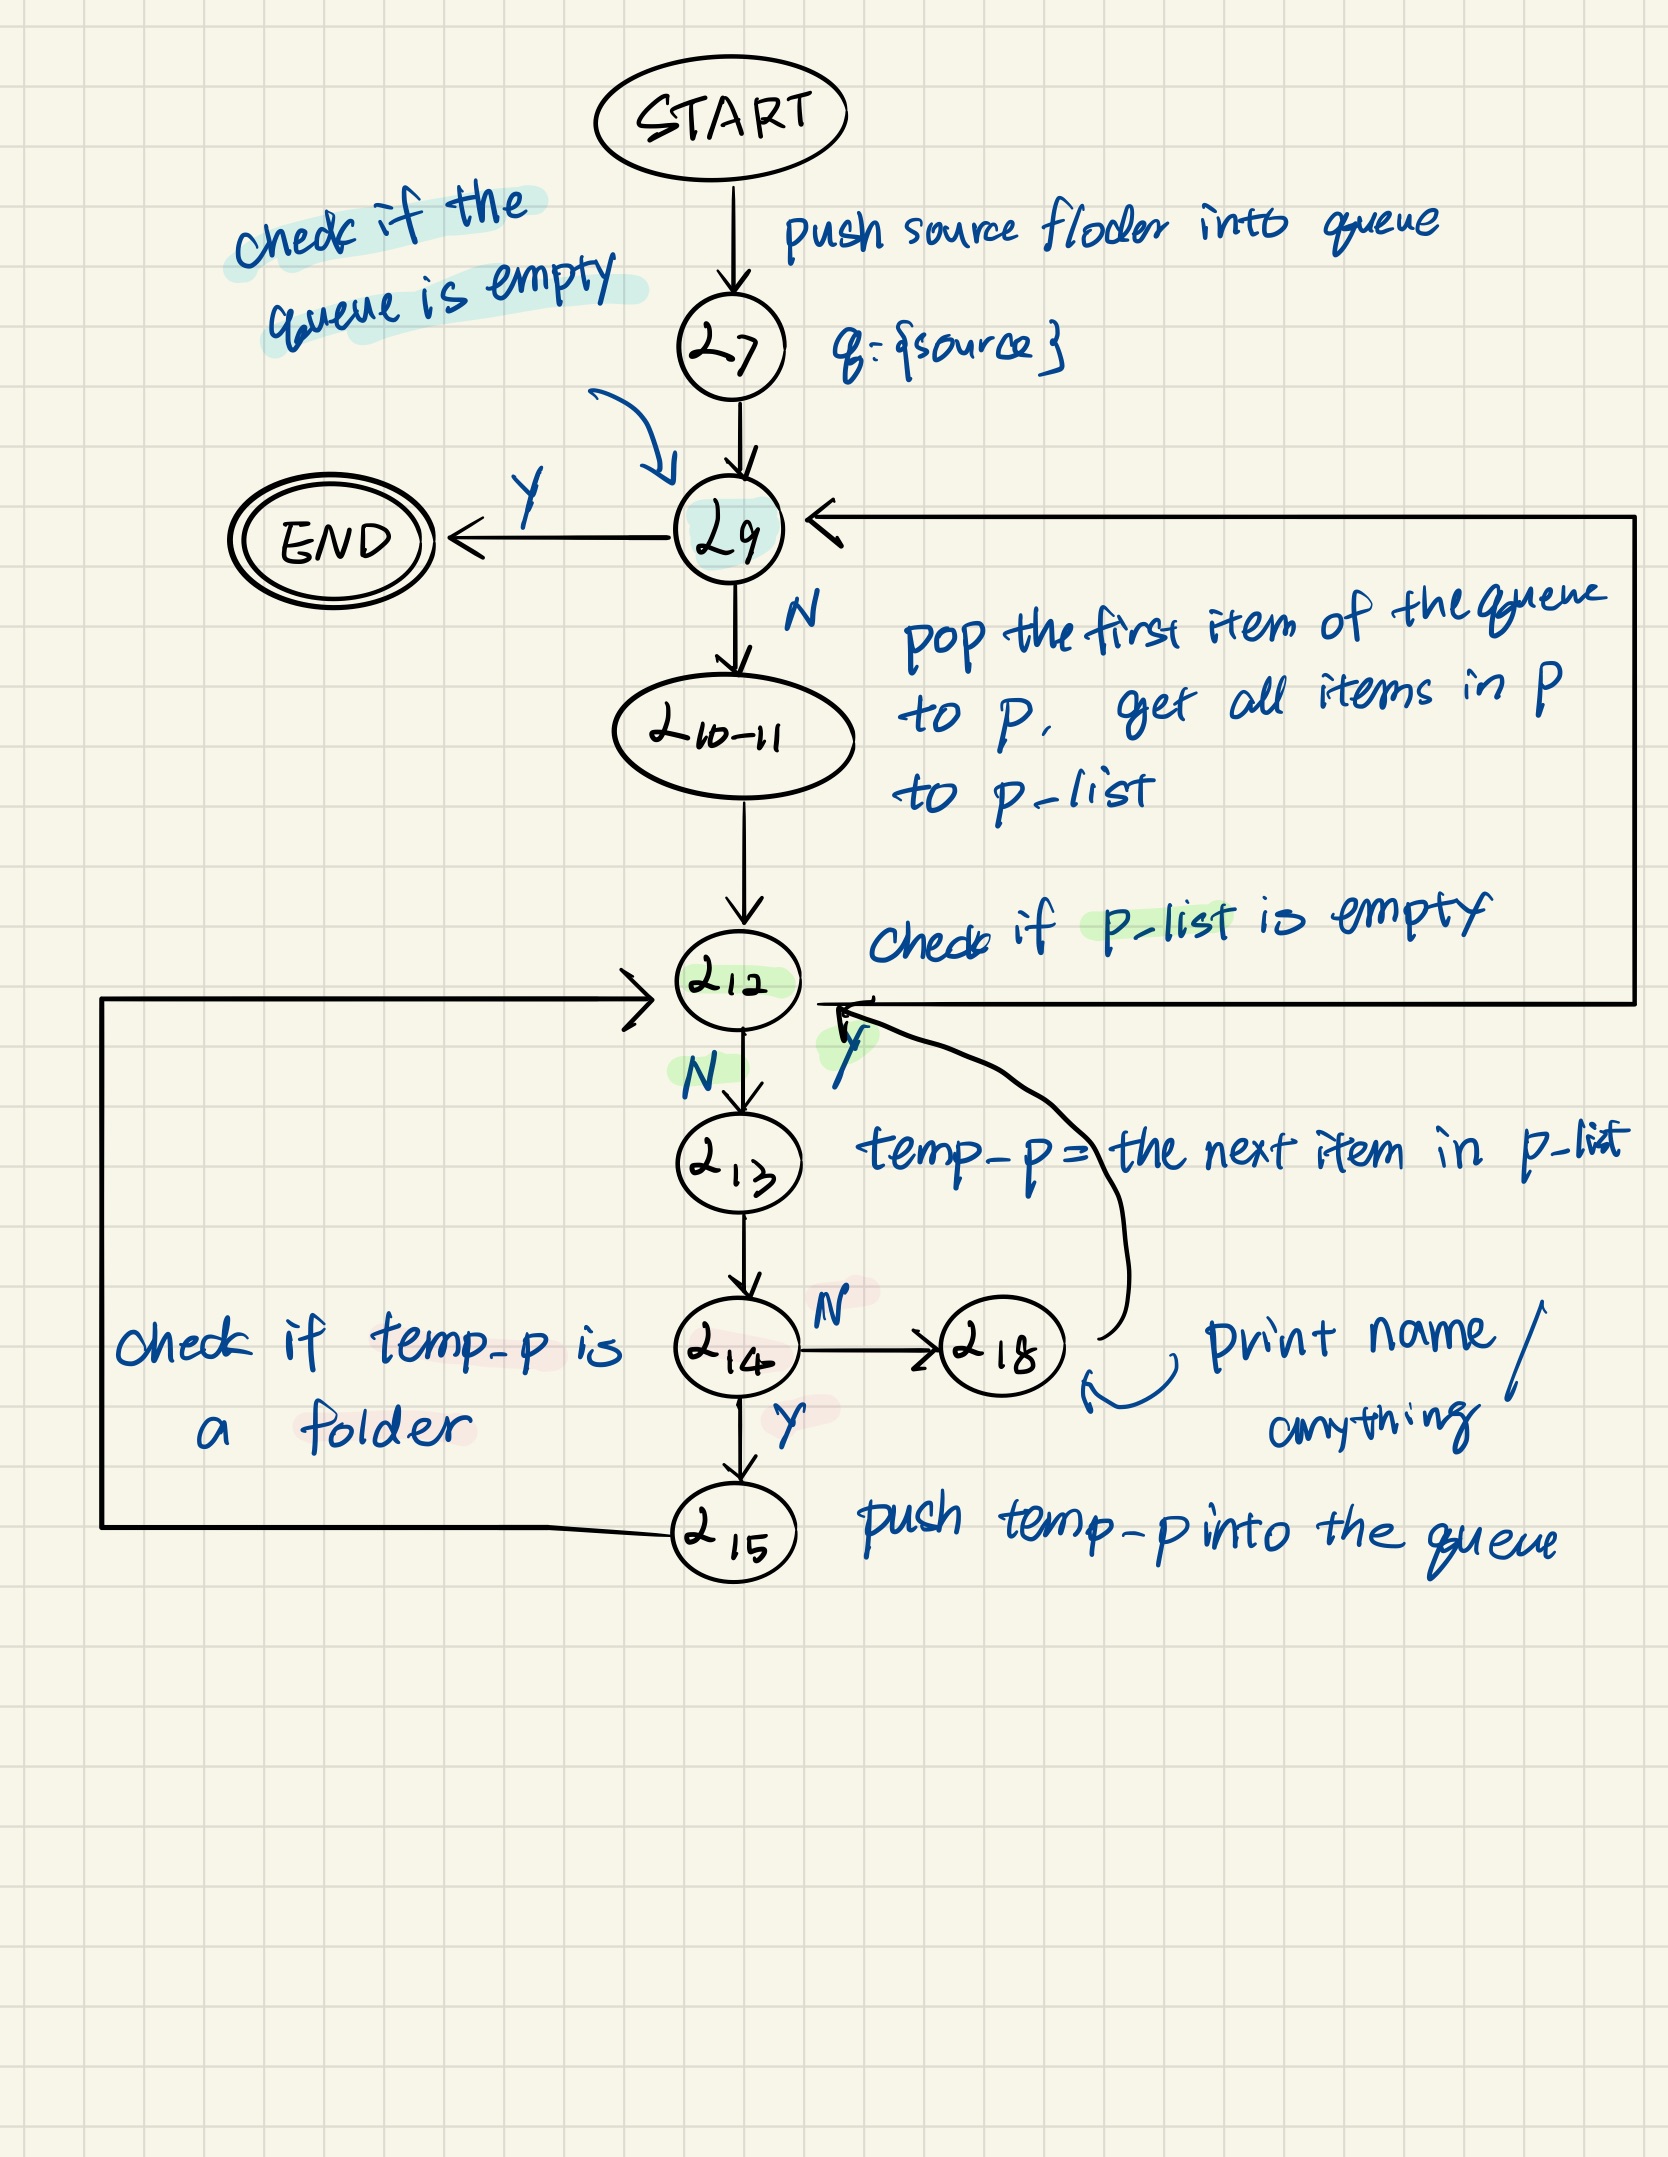 START
check if the
queue is empty
push source floder into queue
L7
q={source}
Y
END
L9
N
pop the first item of the queue
to p. get all items in p
to p_list
L10-11
check if p_list is empty
L12
N
Y
L13
temp_p = the next item in p_list
check if temp_p is
a folder
L14
N
L18
print name /
anything
Y
L15
push temp_p into the queue